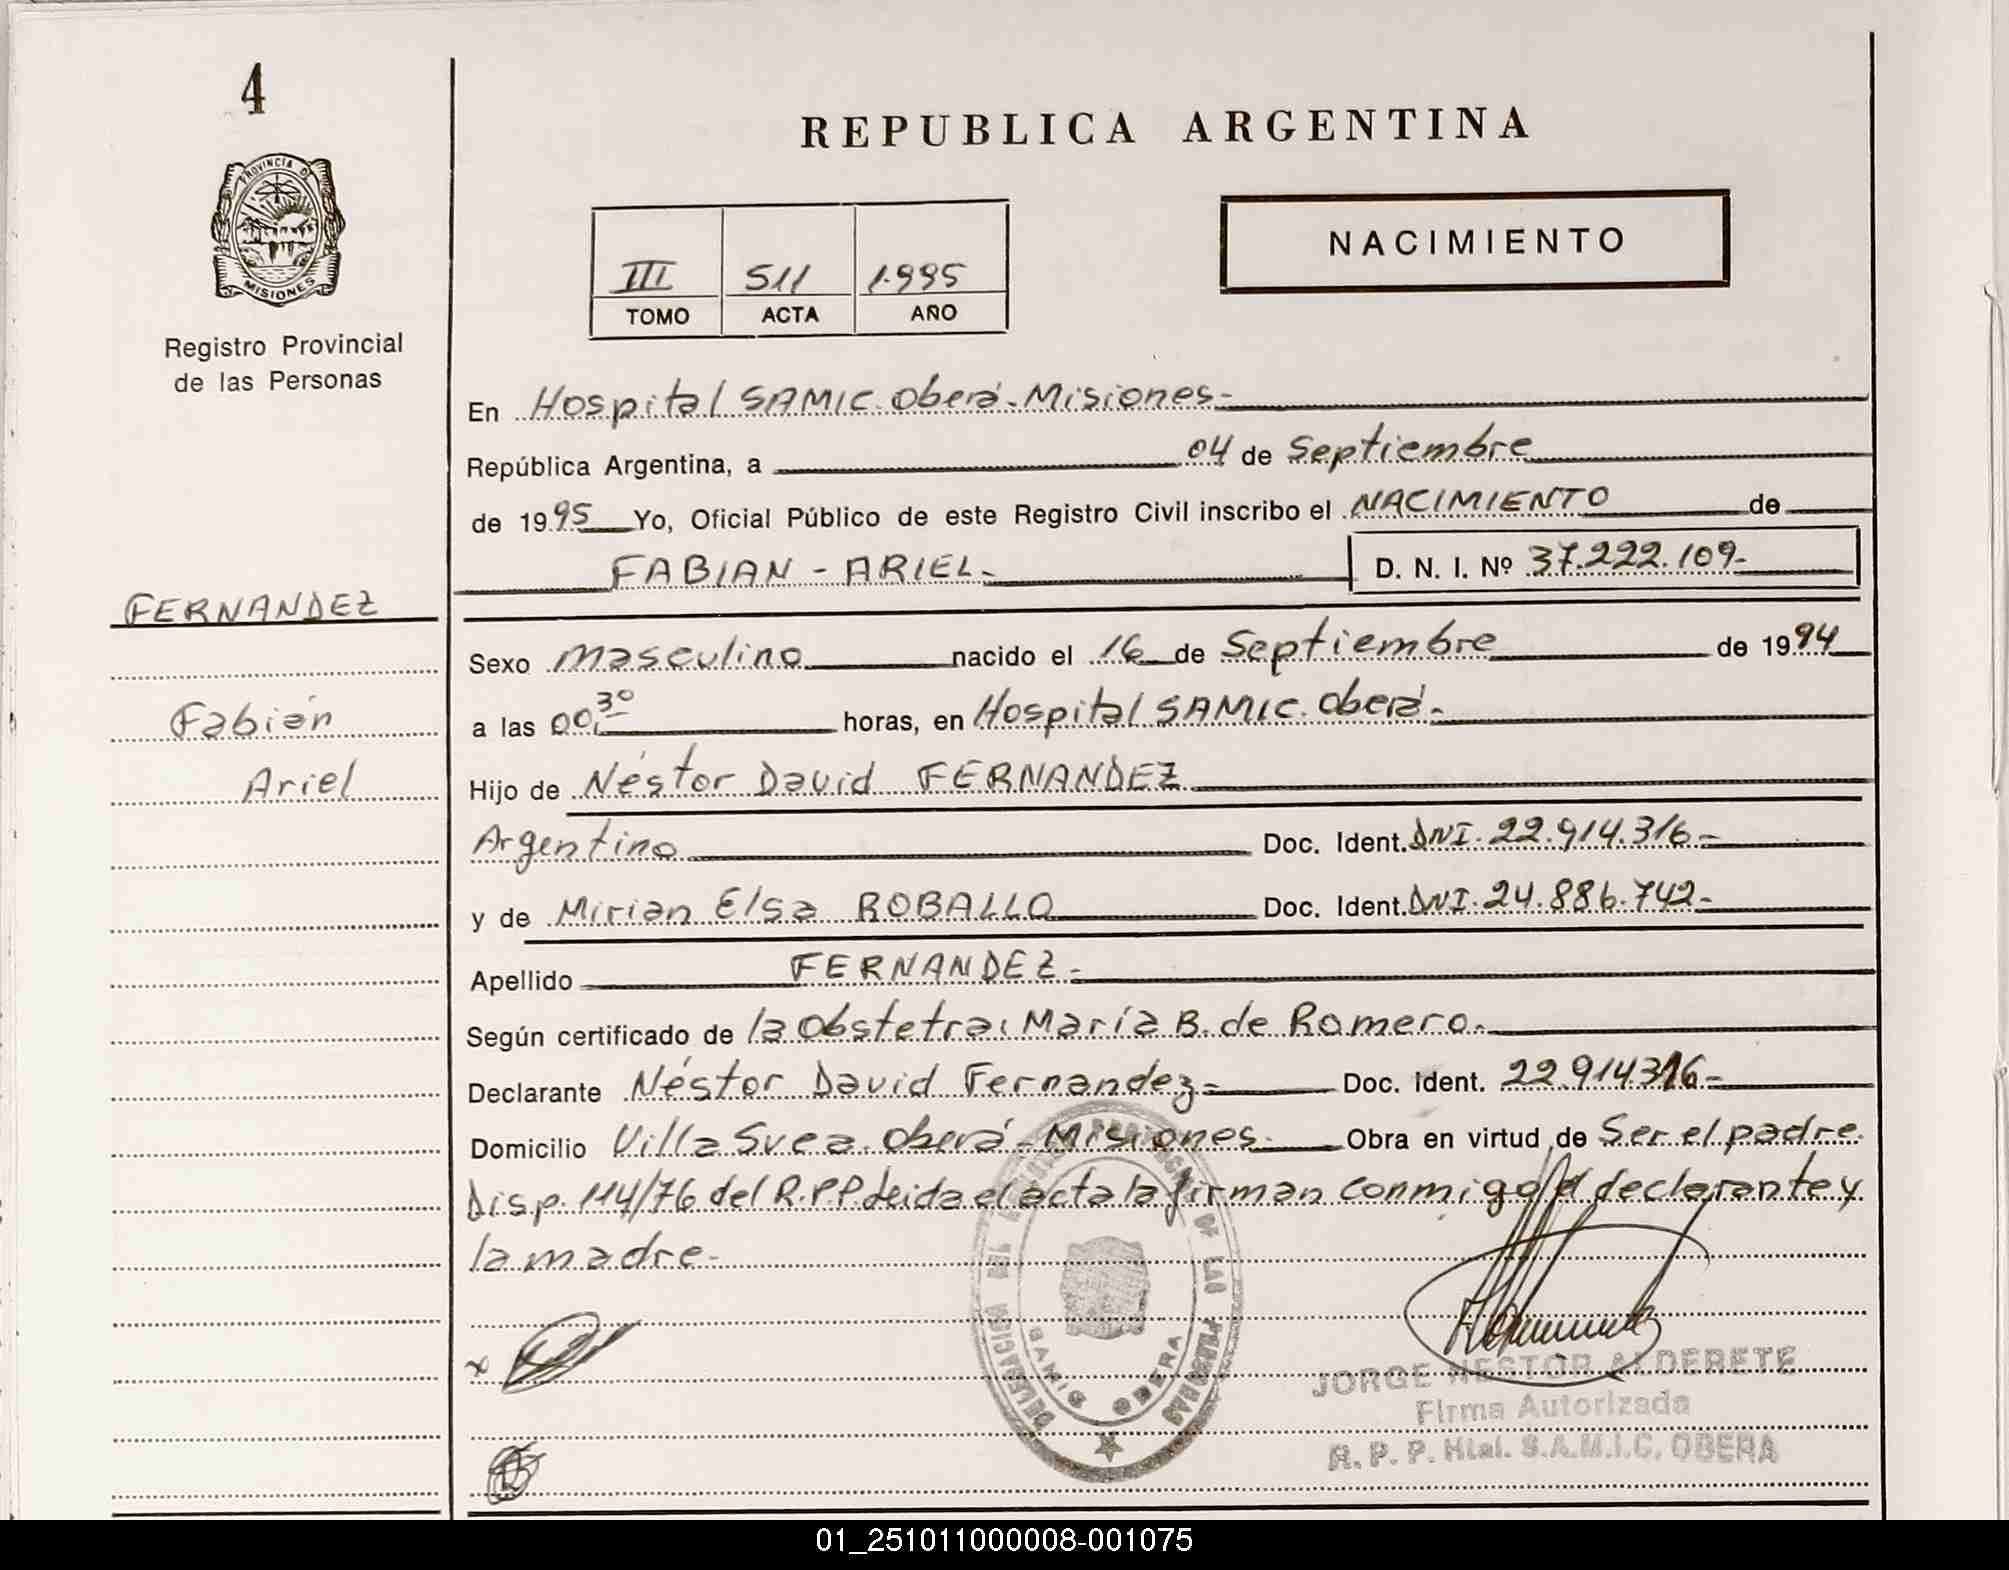 4
PROVINCIA DE
MISIONES
Registro Provincial
de las Personas
REPUBLICA ARGENTINA
NACIMIENTO
III 511 1.995
TOMO ACTA AÑO
En Hospital SAMIC. Oberá - Misiones -
República Argentina, a 04 de Septiembre
de 1995 Yo, Oficial Público de este Registro Civil inscribo el NACIMIENTO de
FABIAN - ARIEL - D. N. I. Nº 37.222.109-
FERNANDEZ
Fabián
Ariel
Sexo masculino nacido el 16 de Septiembre de 1994
a las 00,30 horas, en Hospital SAMIC. Oberá -
Hijo de Néstor David FERNANDEZ
Argentino Doc. Ident. DNI. 22.914.316-
y de Mirian Elsa ROBALLO Doc. Ident. DNI. 24.886.742-
Apellido FERNANDEZ -
Según certificado de la Obstetra: María B. de Romero.
Declarante Néstor David Fernandez - Doc. Ident. 22.914.316-
Domicilio Villa Svea. Oberá - Misiones - Obra en virtud de Ser el padre.
Disp. 114/76 del R.P.P. Leida el acta la firman conmigo el declarante y
la madre -
DELEGACION DEL REGISTRO PROVINCIAL DE LAS PERSONAS
SAMIC OBERA
JORGE NESTOR ALDERETE
Firma Autorizada
R. P. P. Htal. S.A.M.I.C. OBERA
01_251011000008-001075